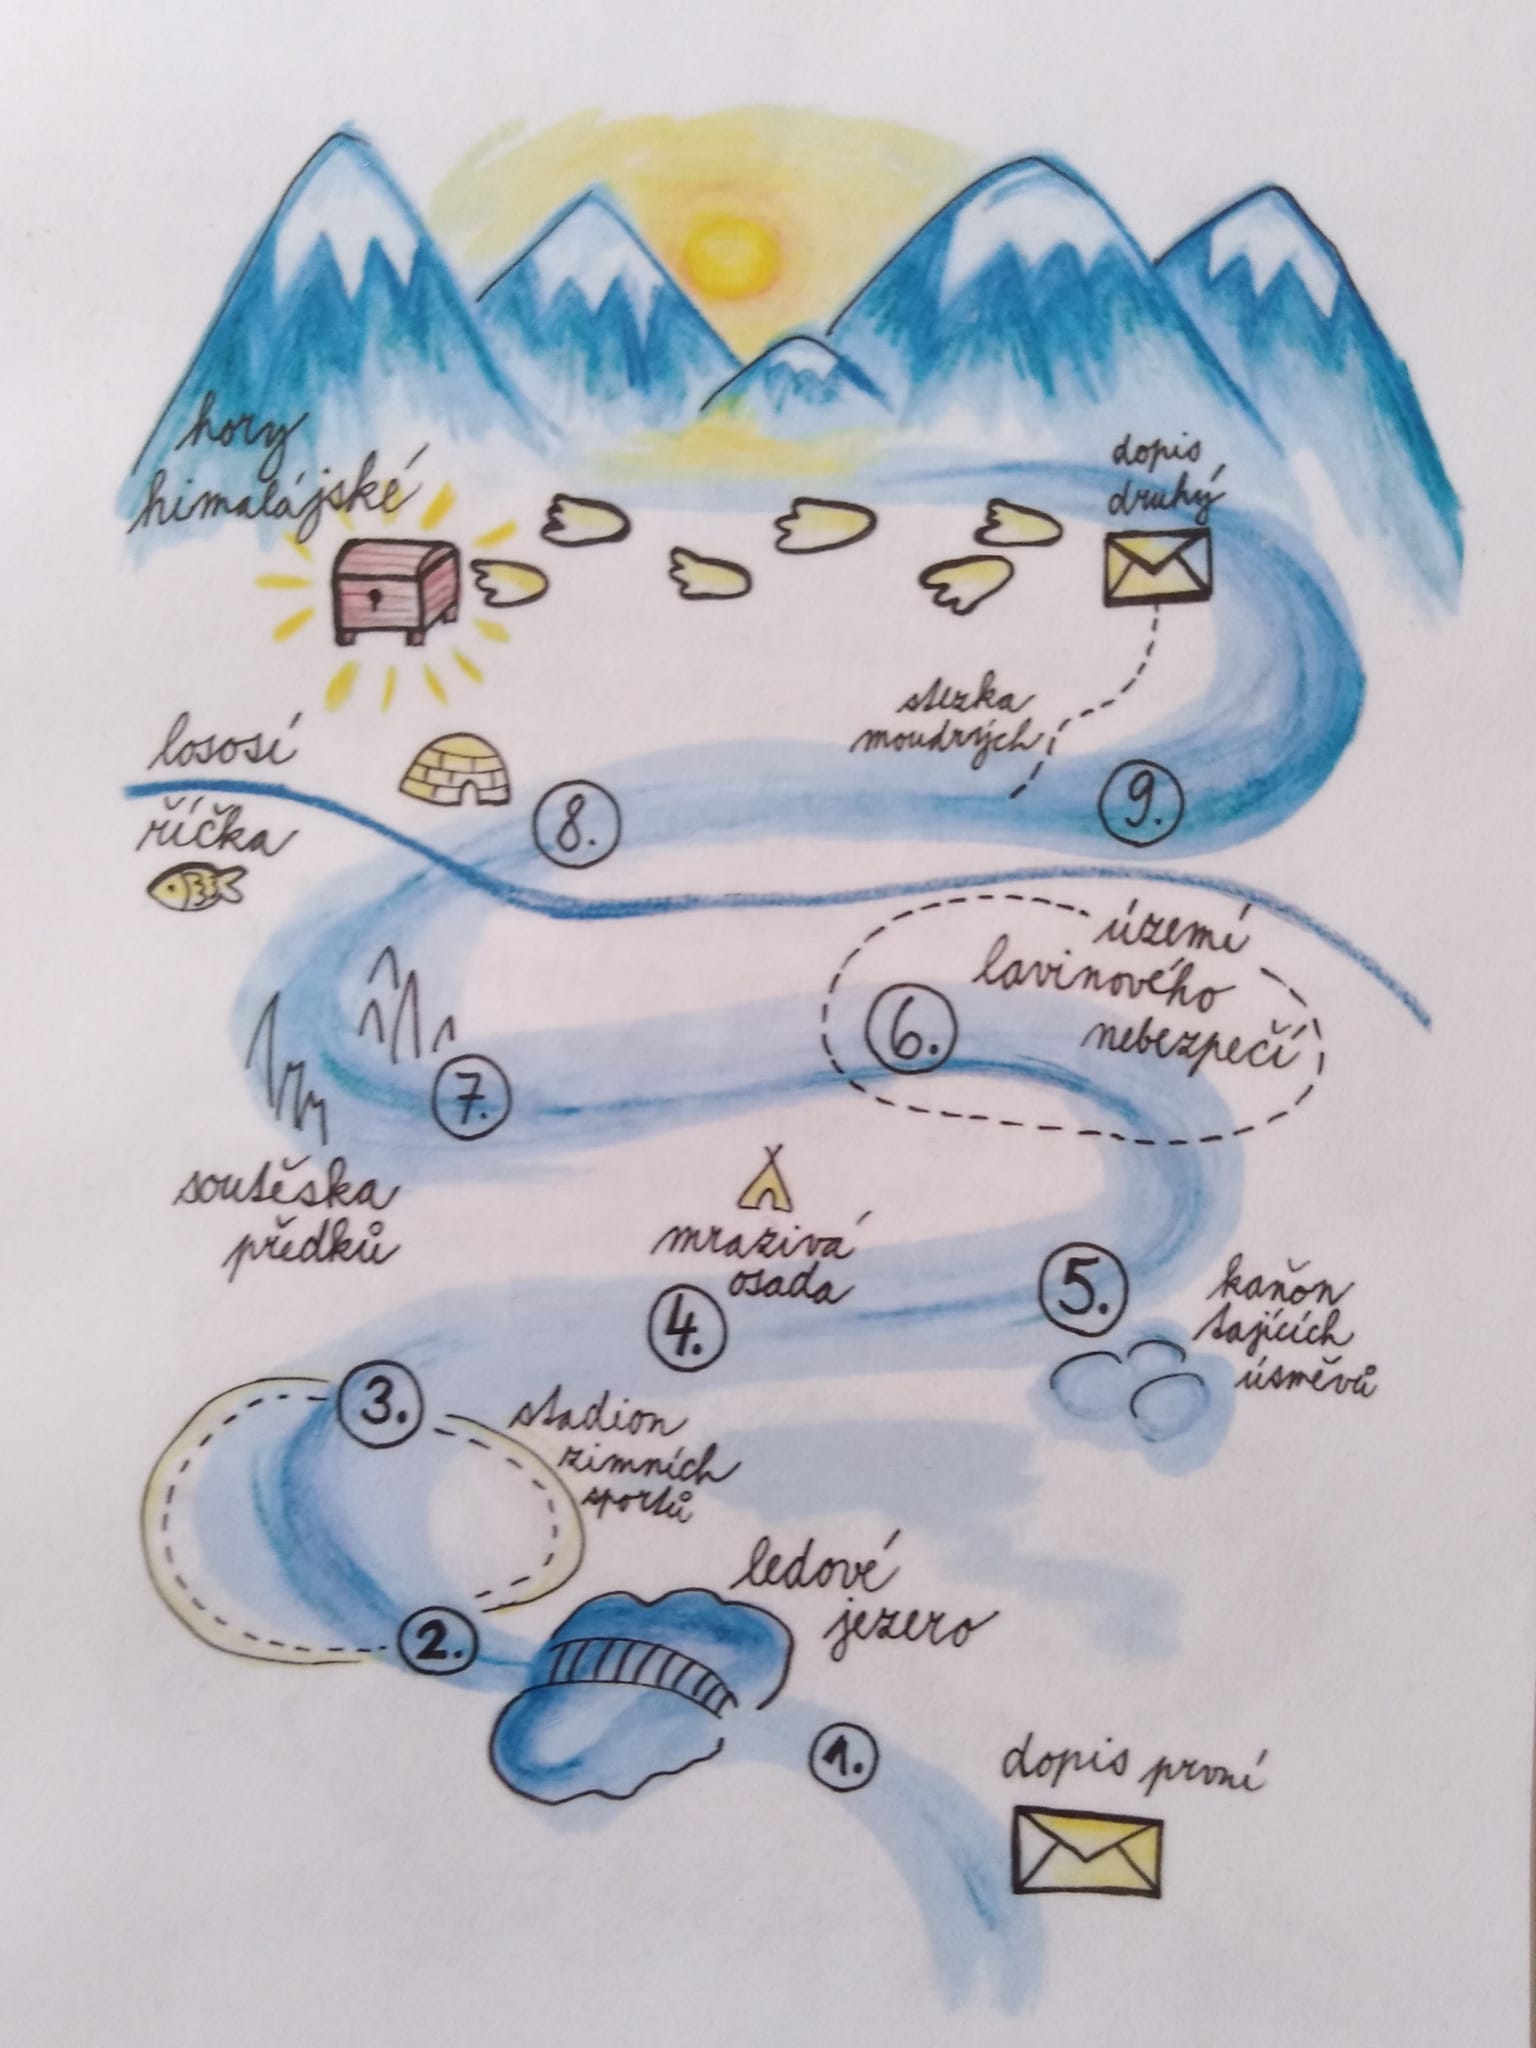 hory
himalájské
dopis
druhý
stezka
moudrých
lososí
říčka
8.
9.
území
lavinového
nebezpečí
6.
7.
soutěska
předků
mrazivá
osada
4.
5.
kaňon
tajících
úsměvů
3.
stadion
zimních
sportů
2.
ledové
jezero
1.
dopis první